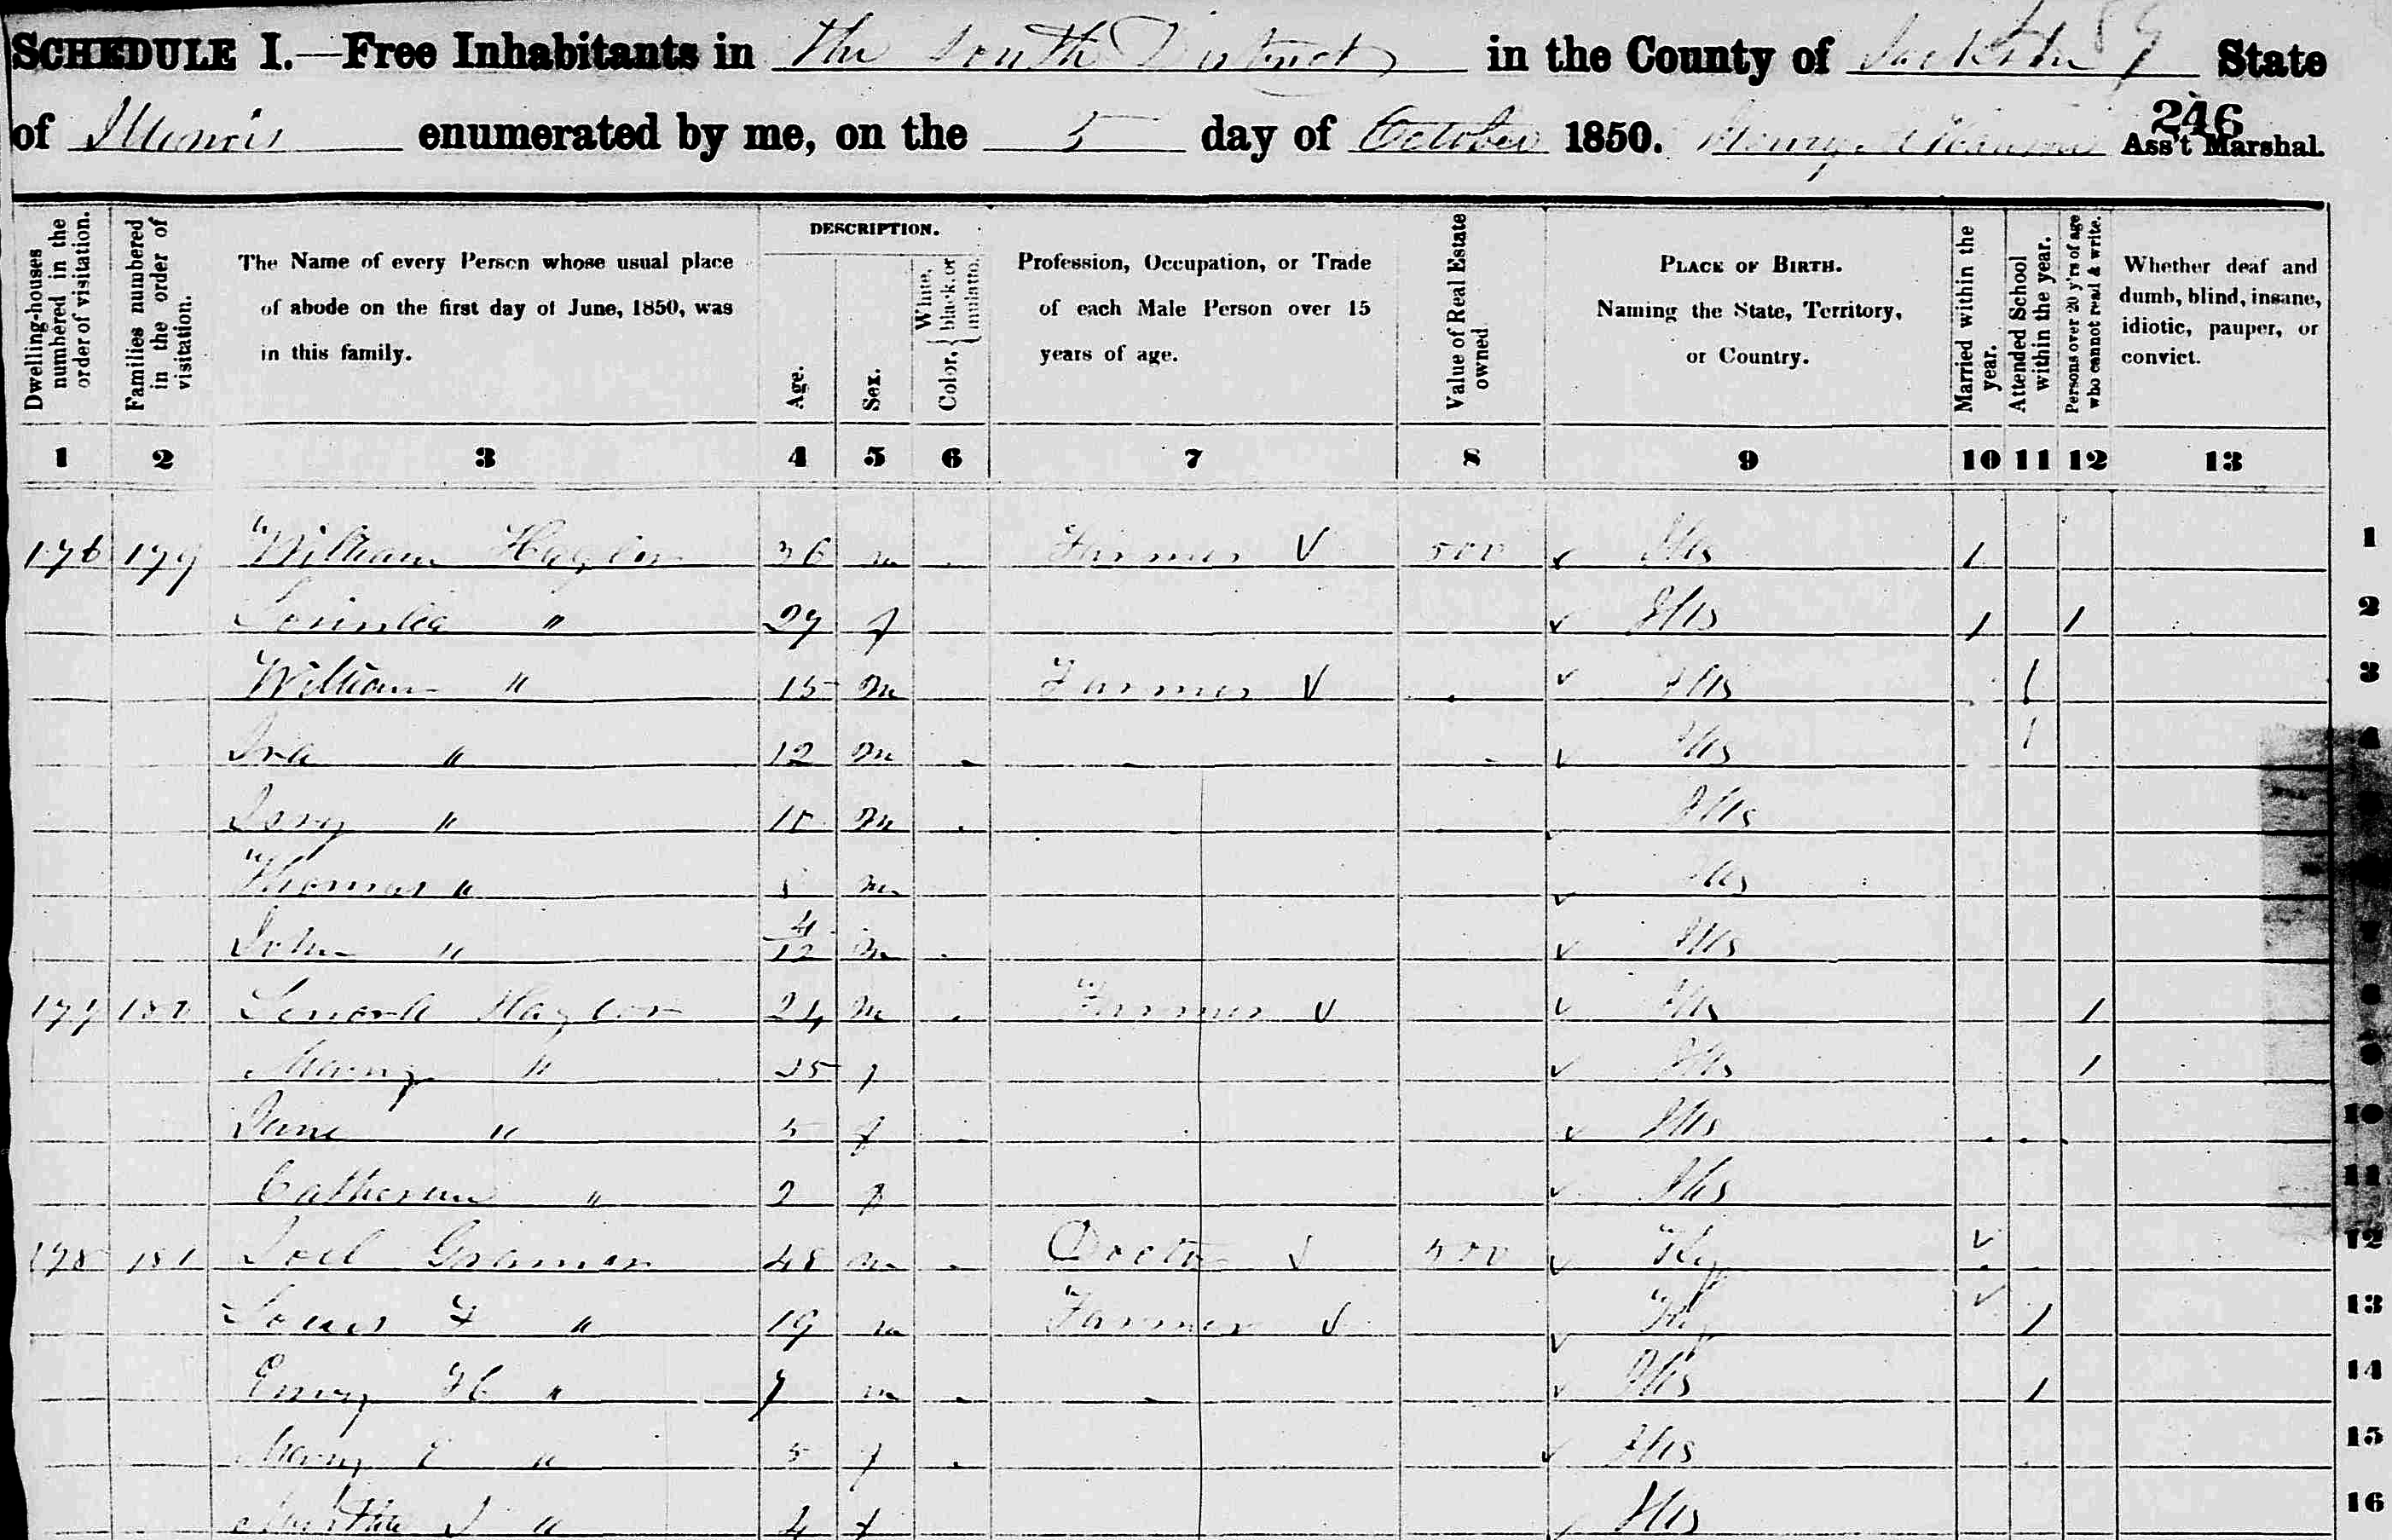 59
SCHEDULE I.—Free Inhabitants in the South District in the County of Jackson State
of Illinois enumerated by me, on the 5 day of October 1850. Henry Ass't Marshal.
246
Dwelling-houses numbered in the order of visitation.
Families numbered in the order of visitation.
The Name of every Person whose usual place
of abode on the first day of June, 1850, was
in this family.
DESCRIPTION.
Age.
Sex.
Color, { White, black, or mulatto.
Profession, Occupation, or Trade
of each Male Person over 15
years of age.
Value of Real Estate owned
PLACE OF BIRTH.
Naming the State, Territory,
or Country.
Married within the year.
Attended School within the year.
Persons over 20 y'rs of age who cannot read & write.
Whether deaf and
dumb, blind, insane,
idiotic, pauper, or
convict.
1 2 3 4 5 6 7 8 9 10 11 12 13
176 179 William 36 m Farmer √ 500 √ Ills 1 1
" 27 f √ Ills 1 1 2
William " 15 m Farmer √ √ Ills 1 3
Ira " 12 m √ Ills 1 4
" 10 m Ills
Thomas " m √ Ills
John " 4/12 m √ Ills 7
177 180 24 m Farmer √ √ Ills 1 8
Mary " 25 f √ Ills 1 9
Jane " 5 f √ Ills 10
Catherine " 2 f √ Ills 11
178 181 Joel 48 m Doctor √ 500 √ Ky √ 12
F " 19 m Farmer √ √ Ky √ 1 13
H " 7 m √ Ills 1 14
Mary E " 5 f √ Ills 15
Martha J " 4 f √ Ills 16